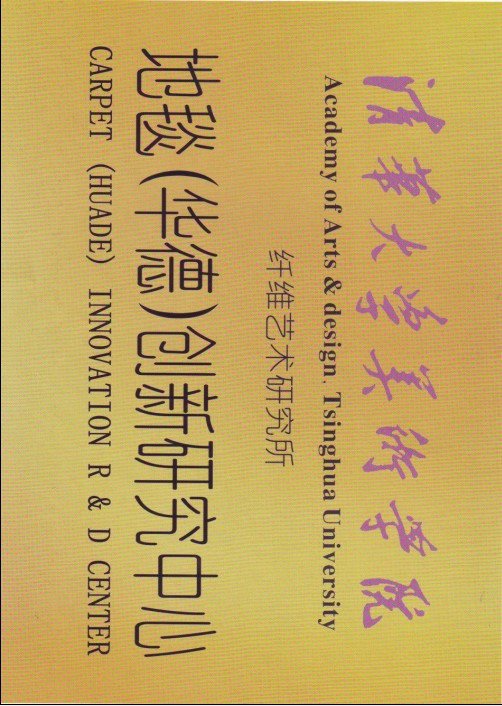 清华大学美术学院
Academy of Arts & design, Tsinghua University
纤维艺术研究所
地毯(华德)创新研究中心
CARPET (HUADE) INNOVATION R & D CENTER